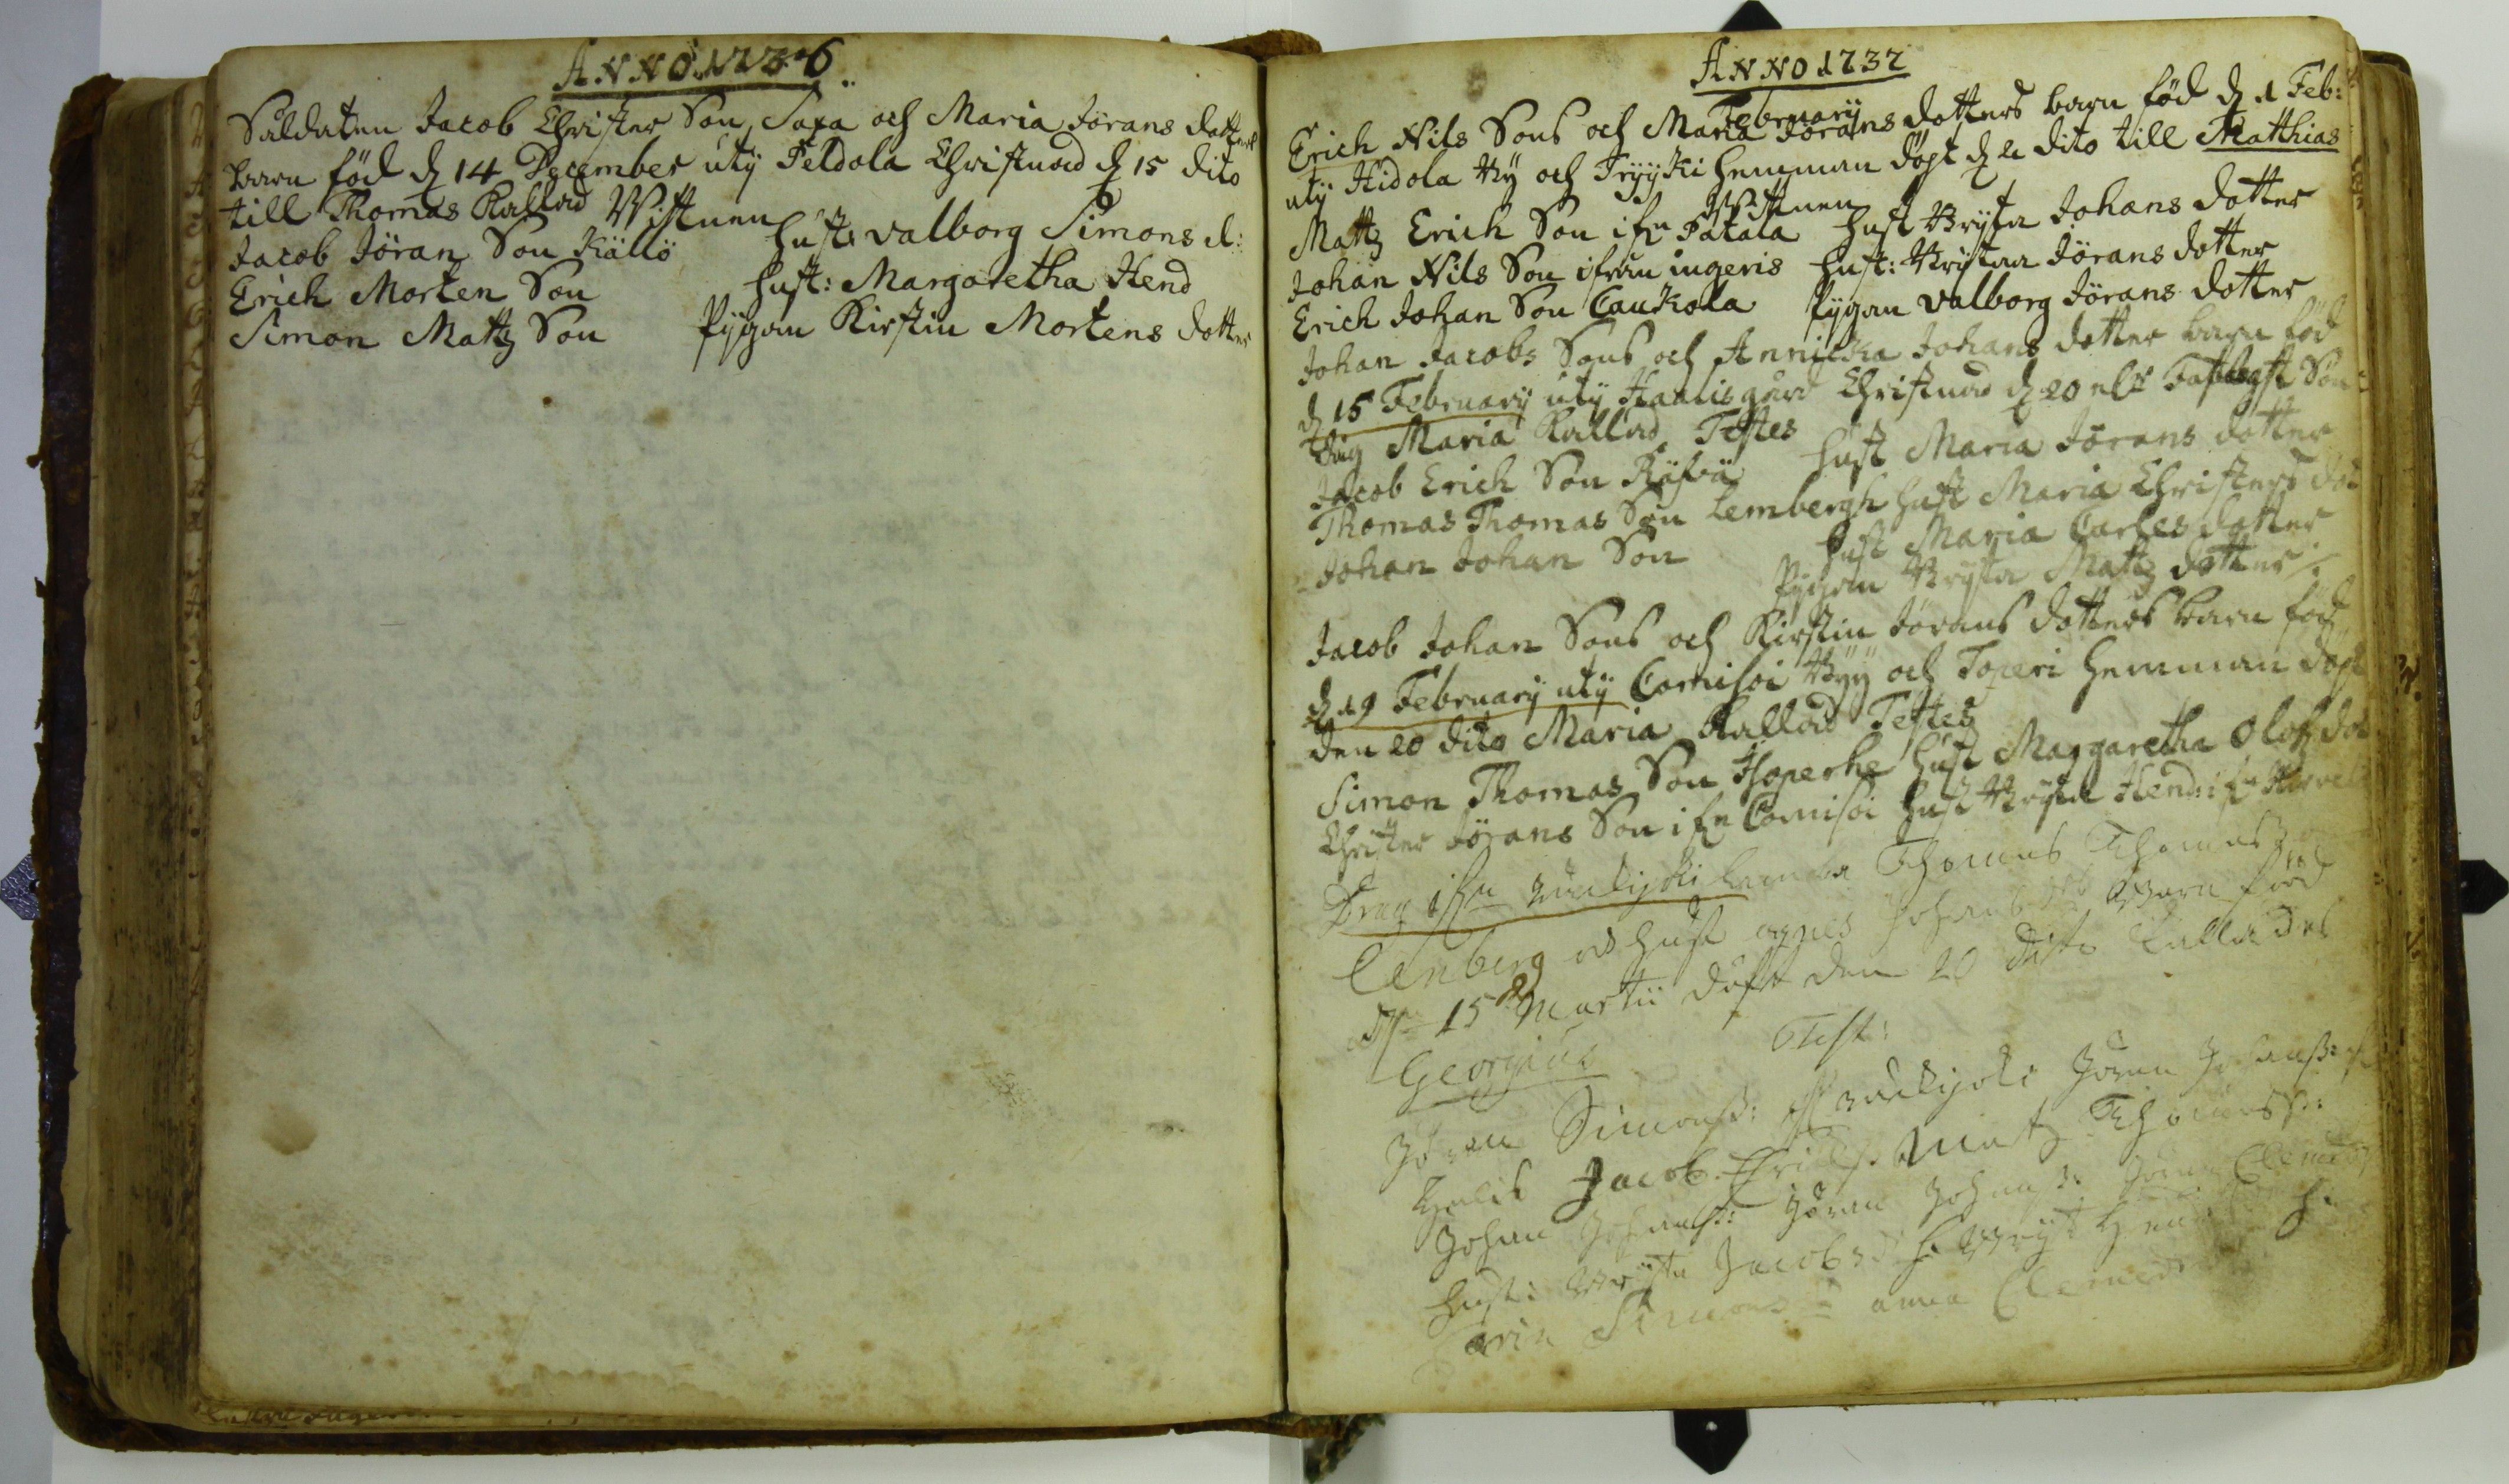 ANNO 1736
Såldaten Jacob Christer Son Saxa och Maria Jörans dotters
barn föd d 14 December uty Peldola Christnad d 15 dito
till Thomas Kallad Wittnen
Jacob Jöran Son Källö hust: valborg Simons d:
Erich Morten Son hust: Margaretha Hend
Simon Mattz Son Pygan Kirstin Mortens dotter
ANNO 1737
February
Erich Nils Sons och Maria Jörans dotters barn föd d 1 Feb:
uty Hidola By och Tryyki hemman döpt d 2 dito till Matthias
Wittnen
Mattz Erich Son ifrn Patala hust Bryta Johans dotter
Johan Nils Son ifrån ingeris hust: Brytaa Jörans dotter
Erich Johan Son Caukola Pygan valborg Jörans dotter
Johan Jacobs Sons och Annicka Johans dotter barn föd
d 15 February uty Haalisgård Christnad d 20 Fastlagst Son
dag Maria Kallad Testes
Jacob Erich Son hust Maria Jörans dotter
Thomas Thomas Son Lembergh hust Maria Christers dot
Johan Johan Son hust Maria Carles dotter
Pygan Bryta Mattz dotter
Jacob Johan Sons och Kirstin Jörans dotters barn föd
d 19 February uty Cornisoi Byy och Toperi hemman döpt
den 20 dito Maria Kallad Testes
Simon Thomas Son hust Margaretha Olofz dot
Christer Jörans Son ifrn Cornisoi hust Bryta Hend: ifrn
Thomas Thomas
Lenberg och hust agnes Johans barn född
15 Martii döpt den 20 dito kallades
Georgius Test:
Jöran Simonss: Jöran Johanss:
Jacob Erichs: Matz Thomass:
Johan Johanss: Jöran Johanss: Jöran
hust: Bryta Jacobs d: h: Bryt Hen h:
Karin Simons d: anna